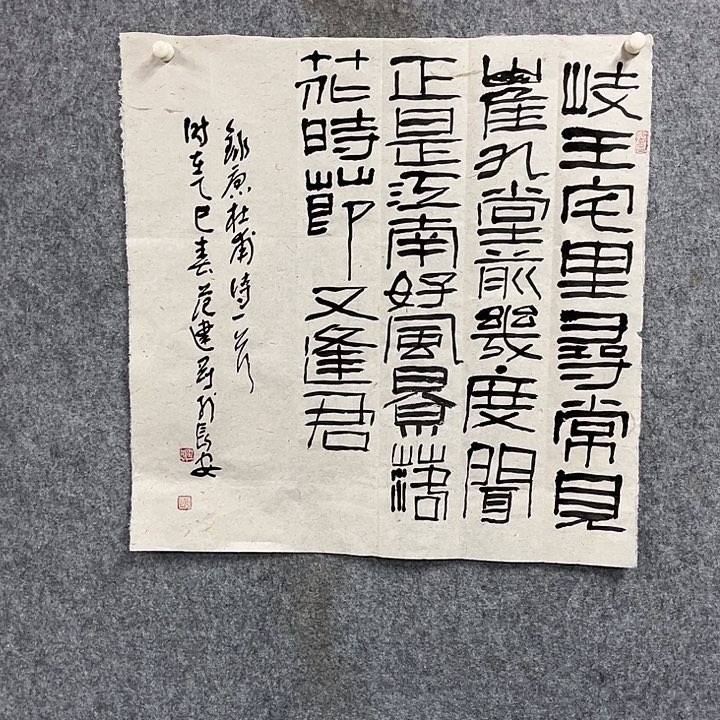 岐王宅里尋常見
崔九堂前幾度聞
正是江南好風景落
花時節又逢君
錄唐杜甫诗一首
时在乙巳春范建於長安